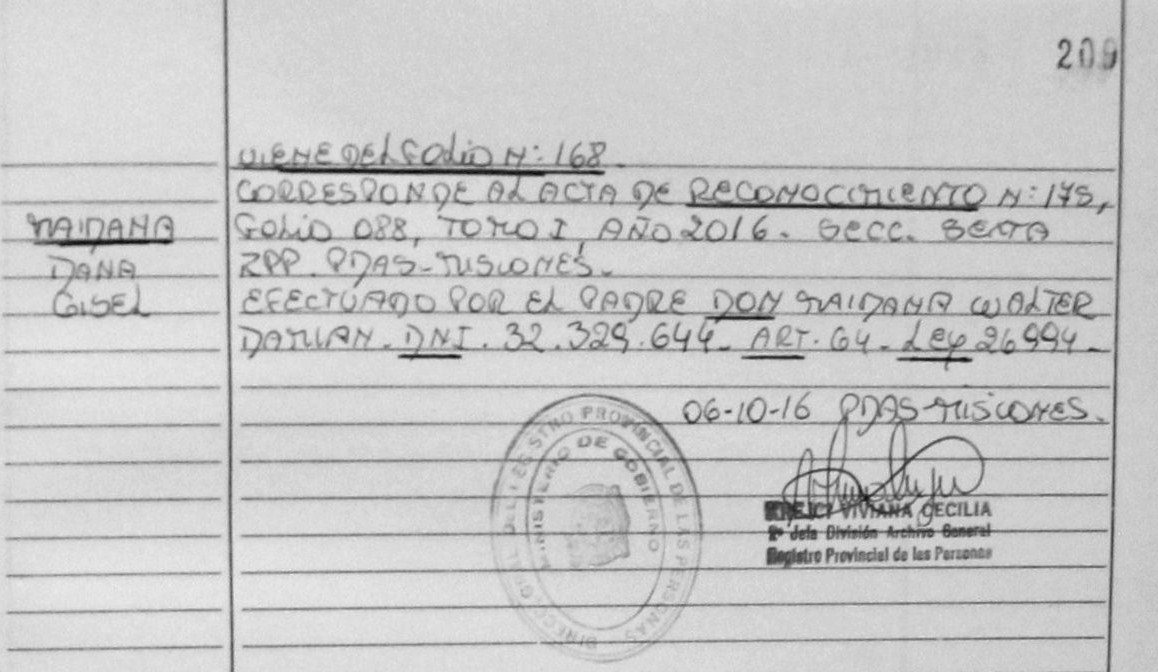 209
VIENE DEL FOLIO N: 168.
CORRESPONDE AL ACTA DE RECONOCIMIENTO N: 175,
MAIDANA
FOLIO 088, TOMO I, AÑO 2016. SECC. SEXTA
DANA
RPP. PDAS-MISIONES.
GISEL
EFECTUADO POR EL PADRE DON MAIDANA WALTER
DAMIAN. DNI. 32.329.644. ART. 64. Ley 26994.
06-10-16 PDAS-MISIONES.
DIRECC. GRAL DEL REGISTRO PROVINCIAL DE LAS PERSONAS
MINISTERIO DE GOBIERNO
VIVIANA CECILIA
2º Jefa División Archivo General
Registro Provincial de las Personas